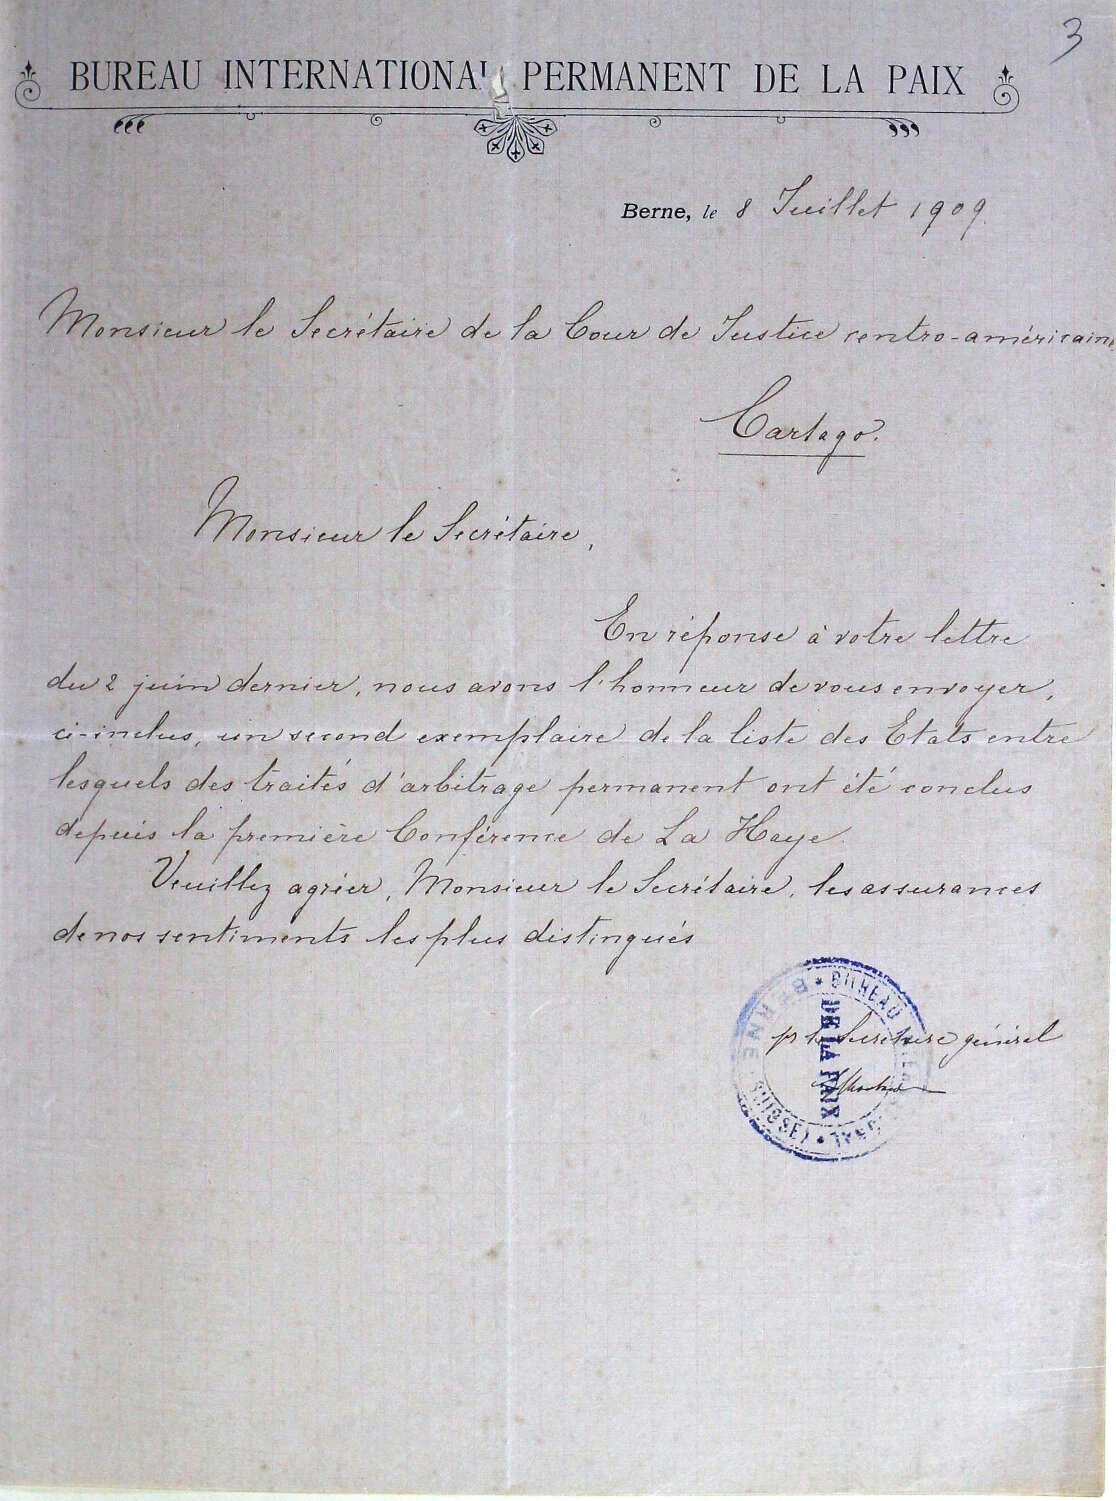 3
BUREAU INTERNATIONAL PERMANENT DE LA PAIX
Berne, le 8 Juillet 1909
Monsieur le Secrétaire de la Cour de Justice centro-américaine
Cartago.
Monsieur le Secrétaire,
En réponse à votre lettre
du 2 juin dernier, nous avons l'honneur de vous envoyer,
ci-inclus, un second exemplaire de la liste des Etats entre
lesquels des traités d'arbitrage permanent ont été conclus
depuis la première Conférence de La Haye.
Veuillez agréer, Monsieur le Secrétaire, les assurances
de nos sentiments les plus distingués
pr le Secrétaire général
BUREAU INTERNATIONAL
DE LA PAIX
BERNE (SUISSE)